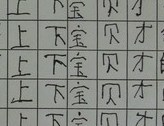 上下宝贝才
上下宝贝才
上下宝贝才
上下宝贝才
上下宝贝才